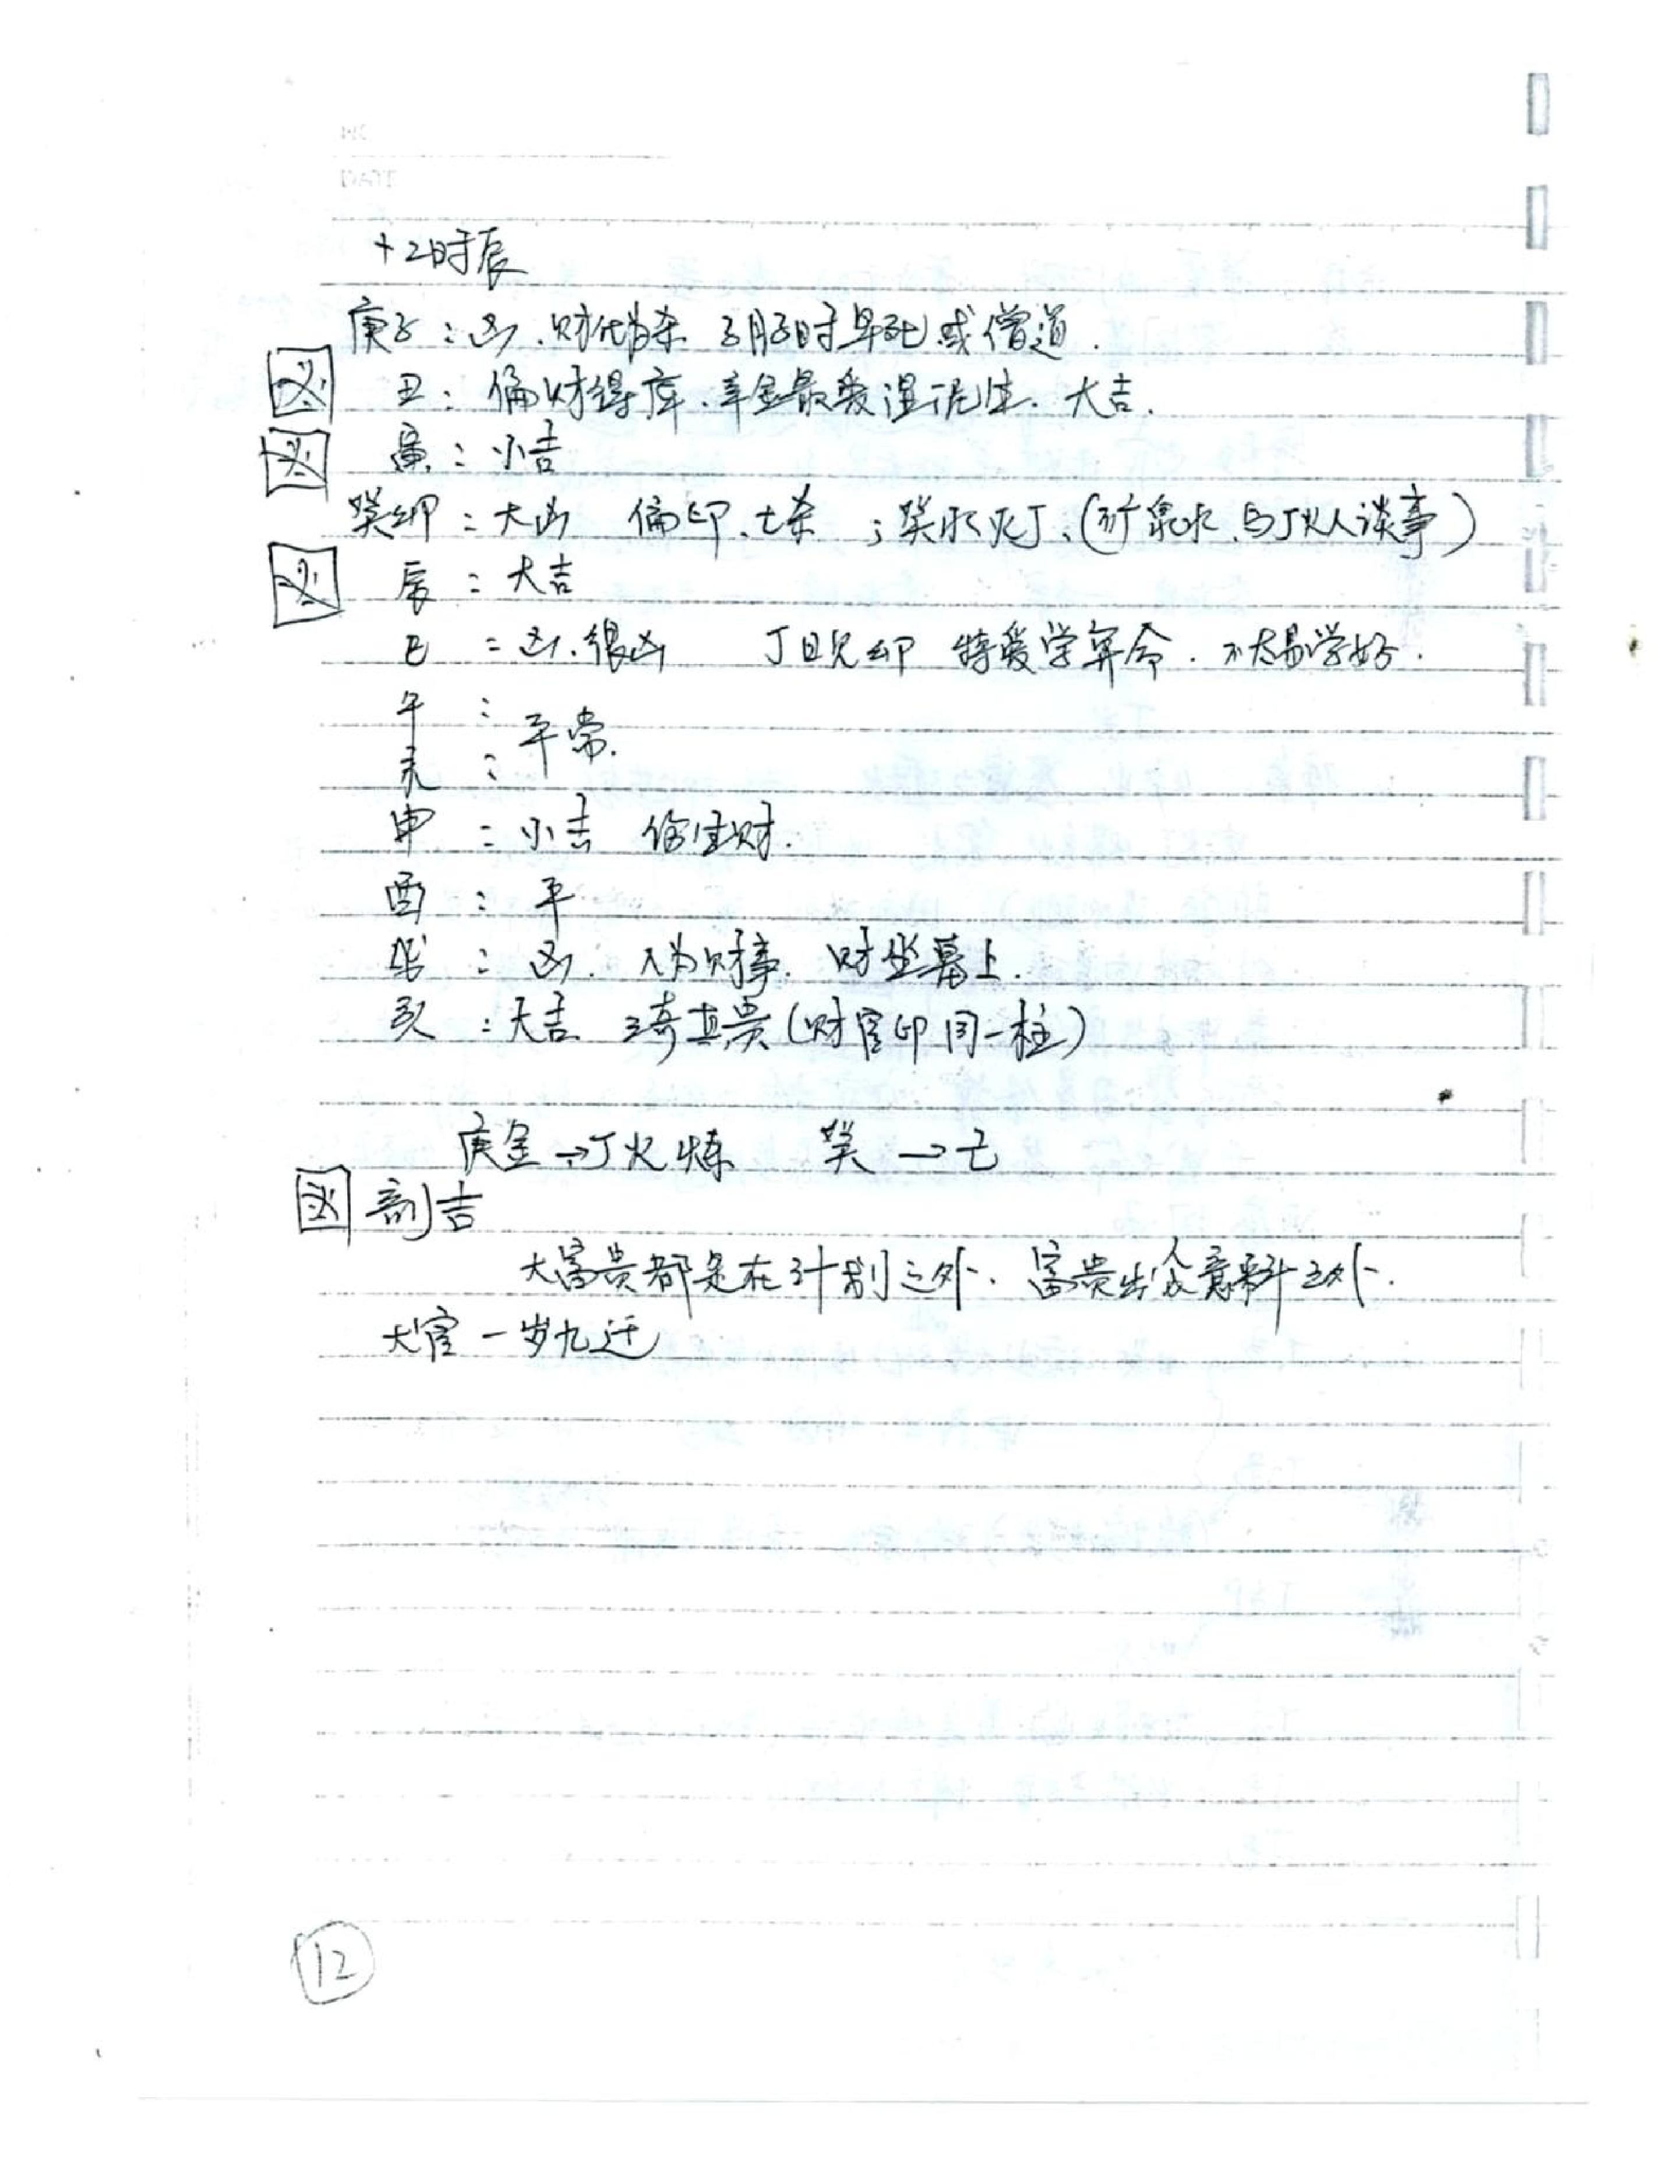 十2时辰
庚子：凶.财代为杀 子月子时早死或僧道.
丑：偏财得库.辛金最爱湿泥生.大吉.
寅：小吉
癸卯：大凶 偏印、七杀；癸水灭丁、(矿泉水、与丁火人谈事)
辰：大吉
巳：凶.很凶 丁日见卯 特爱学算命.不太易学好.
午：
平常.
未：
申：小吉 伤生财.
酉：平
戌：凶.人为财事.财坐墓上.
亥：大吉 三奇真贵(财官印同一柱)
庚金→丁火炼 癸→己
剖吉
大富贵都是在计划之外.富贵出人意料之外.
大官一岁九迁
12